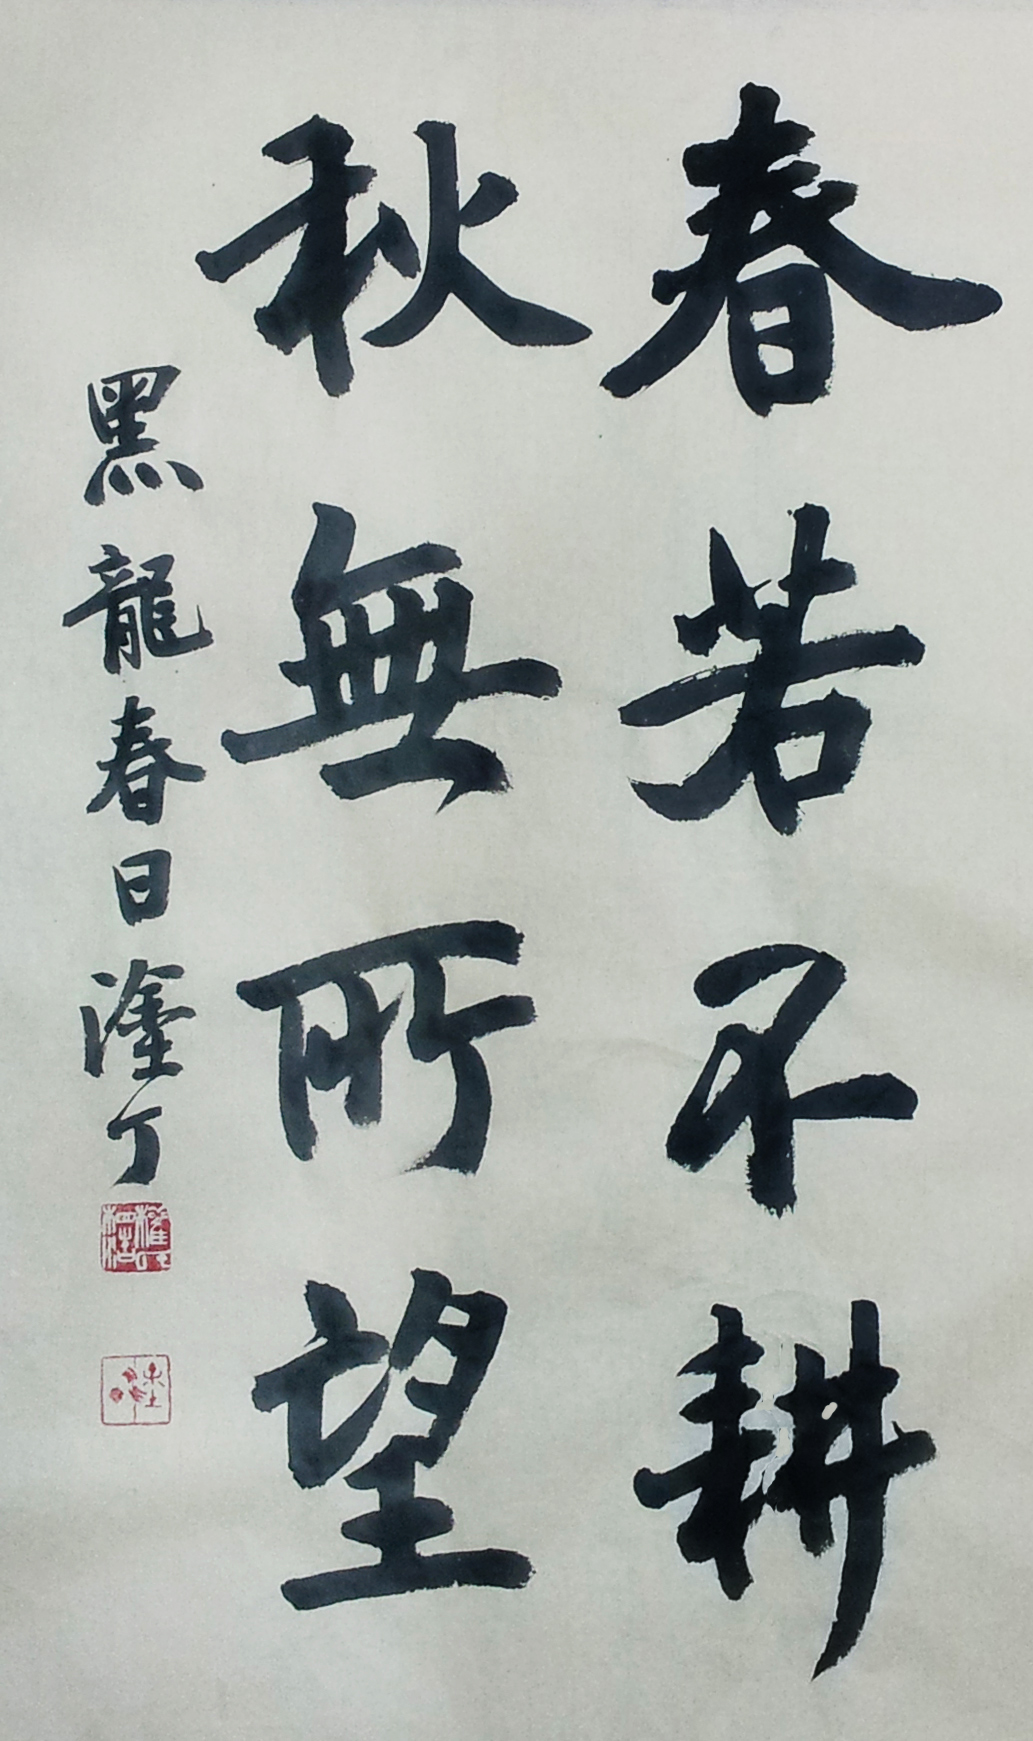 春若不耕
秋無所望
黑龍春日滢丁